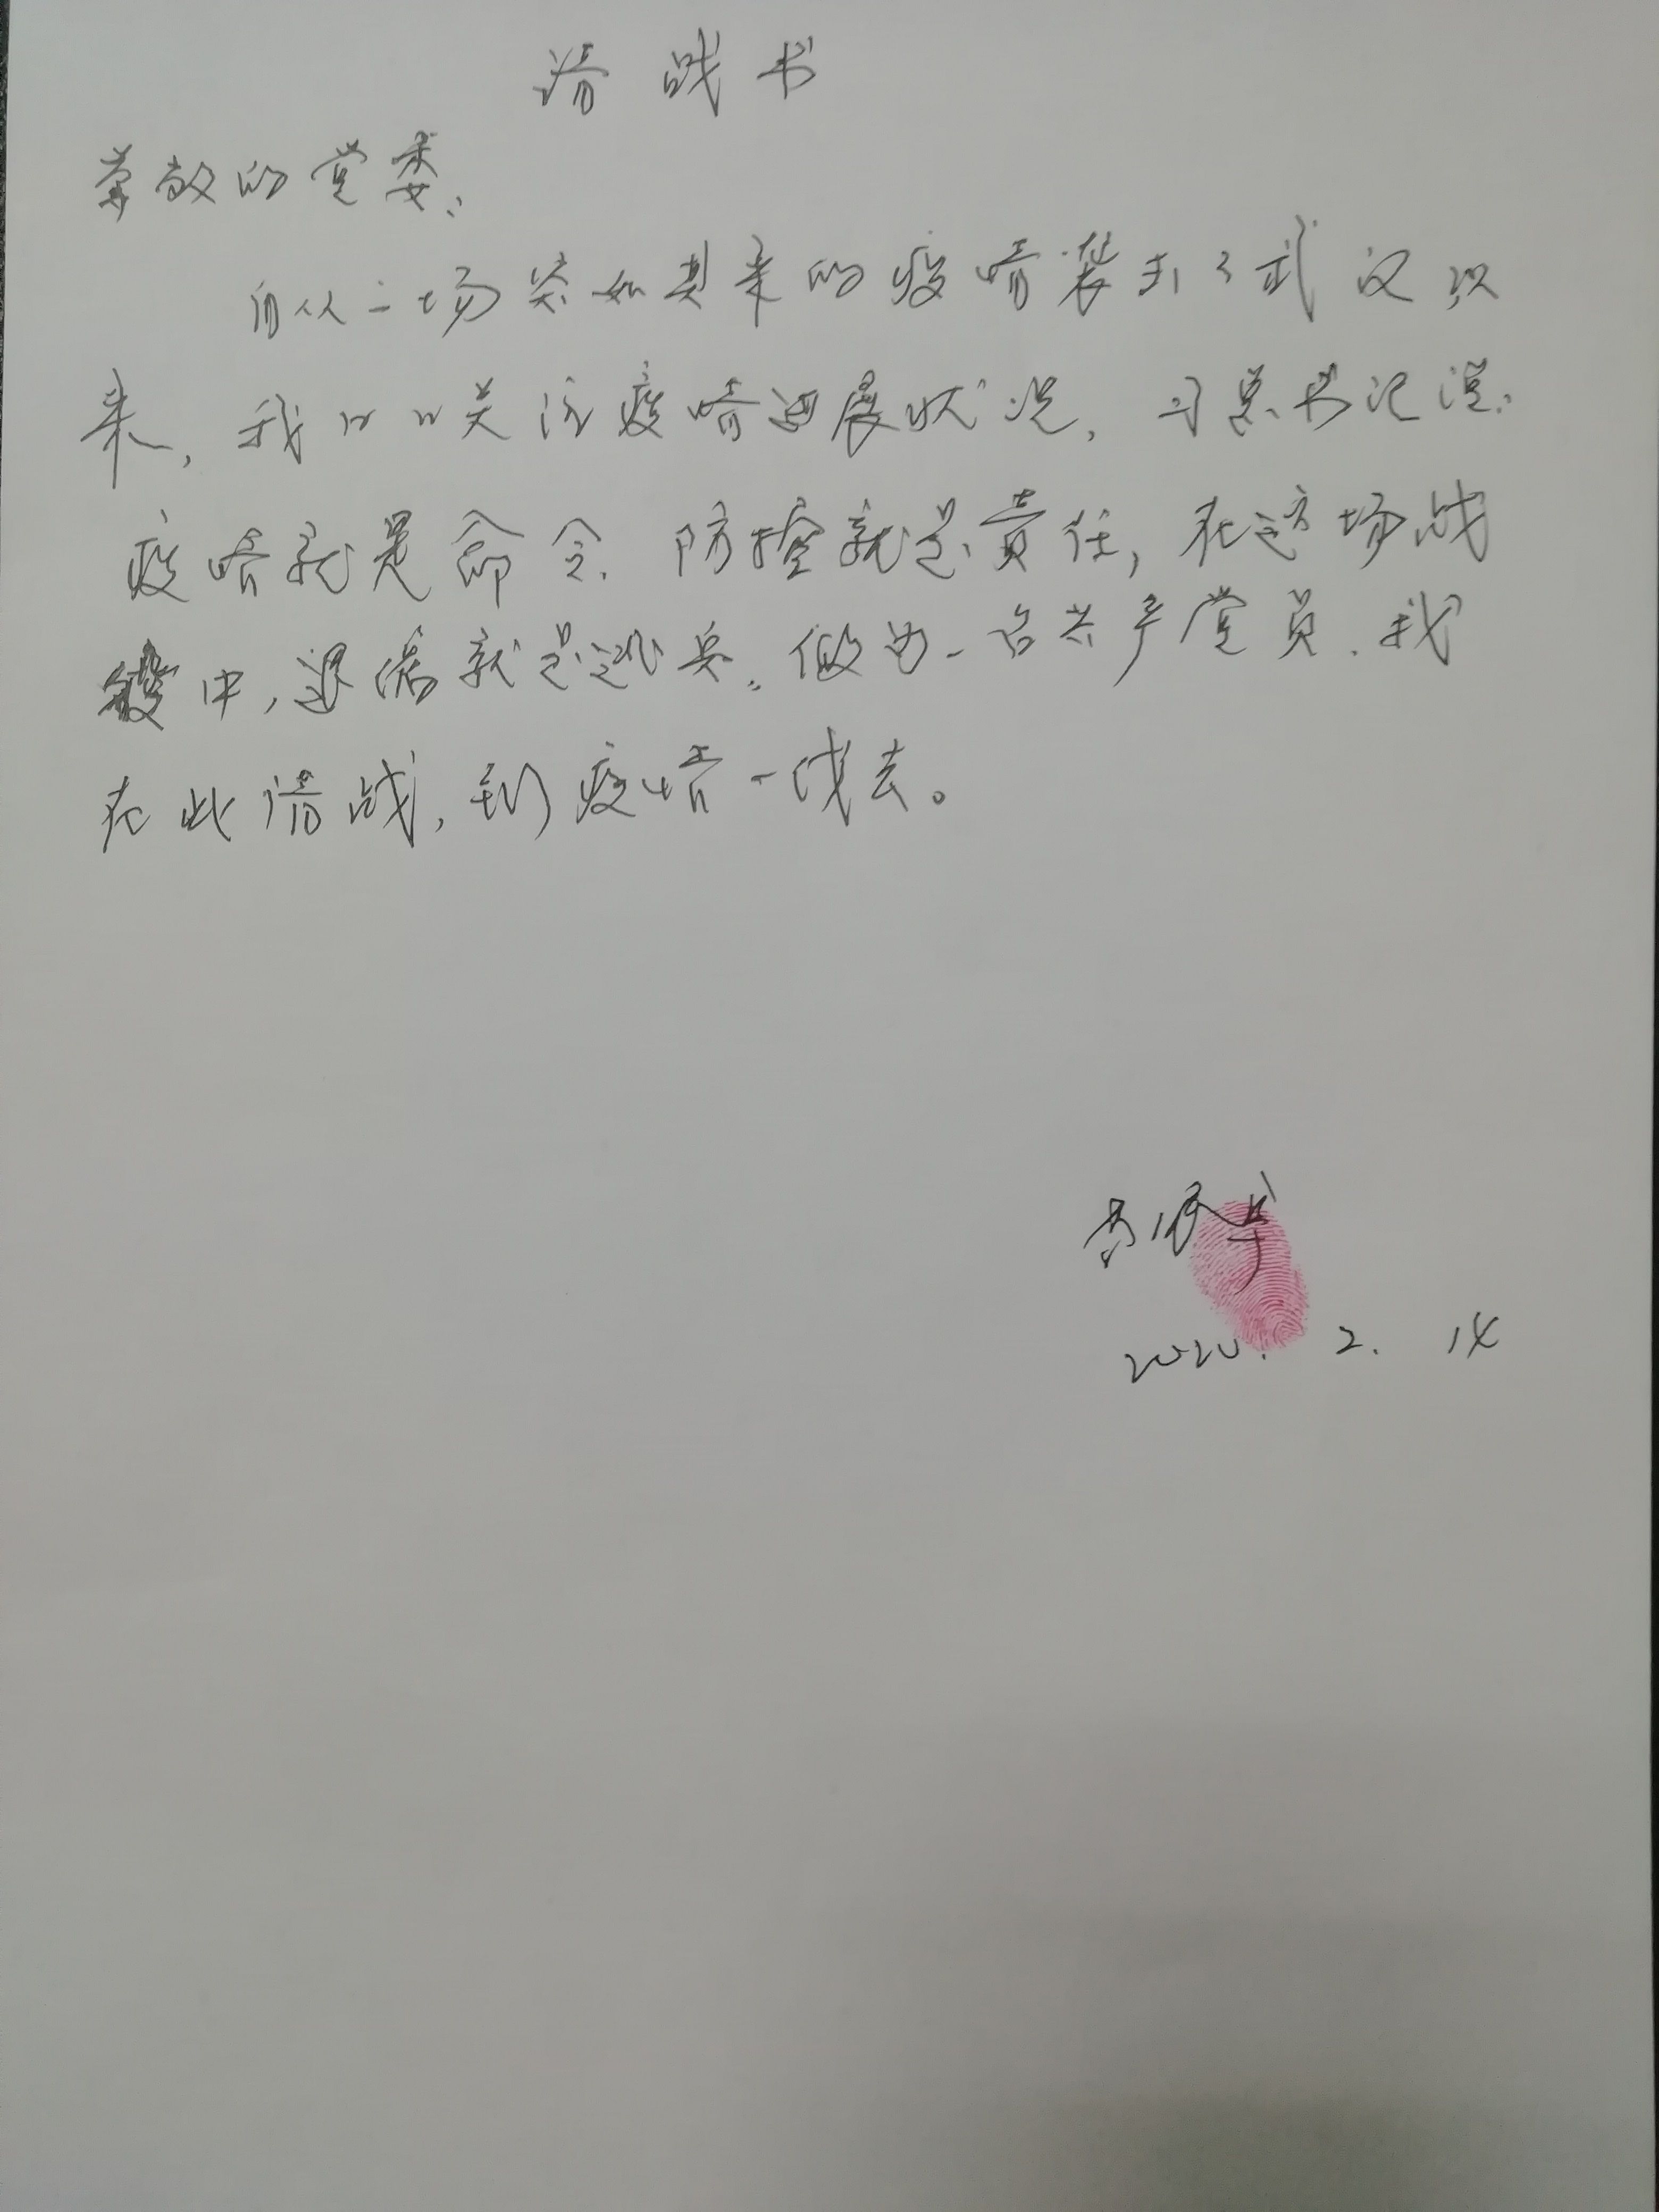 请战书
尊敬的党委：
自从一场突如其来的疫情袭击了武汉以
来，我时时关注疫情进展状况，习总书记说：
疫情就是命令，防控就是责任，在这场战
役中，退缩就是逃兵。做为一名共产党员，我
在此请战，到疫情一线去。
2020. 2. 14